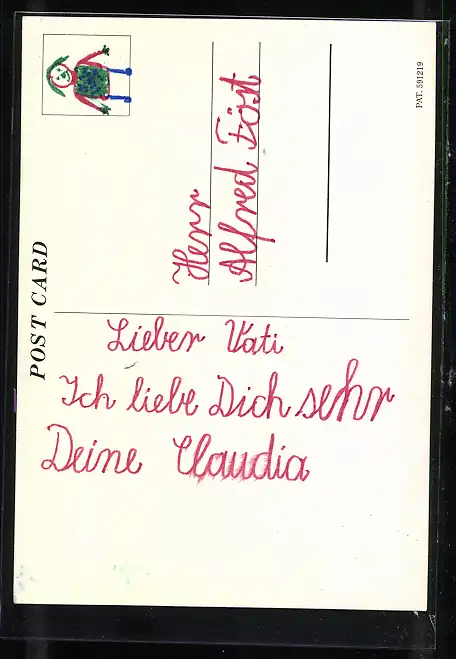 POST CARD
PAT. 591219
Herr
Alfred Föst
Lieber Vati
Ich liebe Dich sehr
Deine Claudia